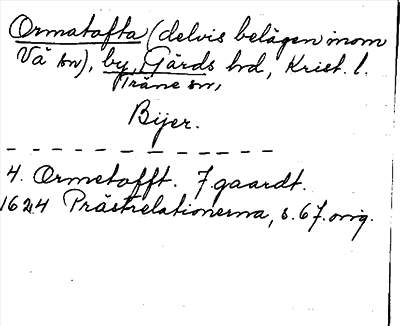 Ormatofta (delvis belägen inom
Vä sn), by, Gärds hd, Krist. l.
Träne sn,
Bijer.
4. Ormetofft. 7 gaardt.
1624 Prästrelationerna, s. 67. orig.